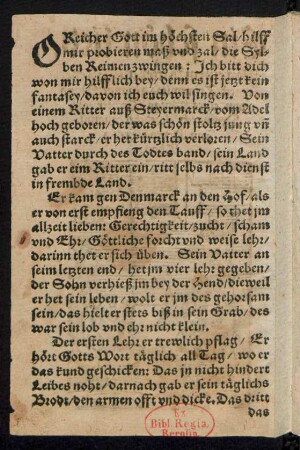 O Reicher Gott im höchsten Sal/hilff
mir probieren maß vnd zal/die Syl-
ben Reimen zwingen: Ich bitt dich
won mir hilfflich bey/denn es ist jetzt kein
fantasey/davon ich euch wil singen. Von
einem Ritter auß Steyermarck/vom Adel
hoch geboren/der was schön stoltz jung vñ
auch starck/er het kürtzlich verloren/Sein
Vatter durch des Todtes band/sein Land
gab er eim Ritter ein/ritt selbs nach dienst
in frembde Land.
Er kam gen Denmarck an den Hof/als
er von erst empfieng den Tauff/so thet jm
allzeit lieben: Gerechtigkeit/zucht/scham
vnd Ehr/Göttliche forcht vnd weise lehr/
darinn thet er sich üben. Sein Vatter an
seim letzten end/het jm vier lehr gegeben/
der Sohn verhieß jm bey der Hend/dieweil
er het sein leben/wolt er jm des gehorsam
sein/das hielt er stets biß in sein Grab/des
war sein lob vnd ehr nicht klein.
Der ersten Lehr er trewlich pflag/Er
hört Gotts Wort täglich all Tag/wo er
das kund geschicken: Das jn nicht hindert
Leibes noht/darnach gab er sein täglichs
Brodt/den armen offt vnd dicke. Das dritt
das
Ex
Bibl. Regia
Berolin.